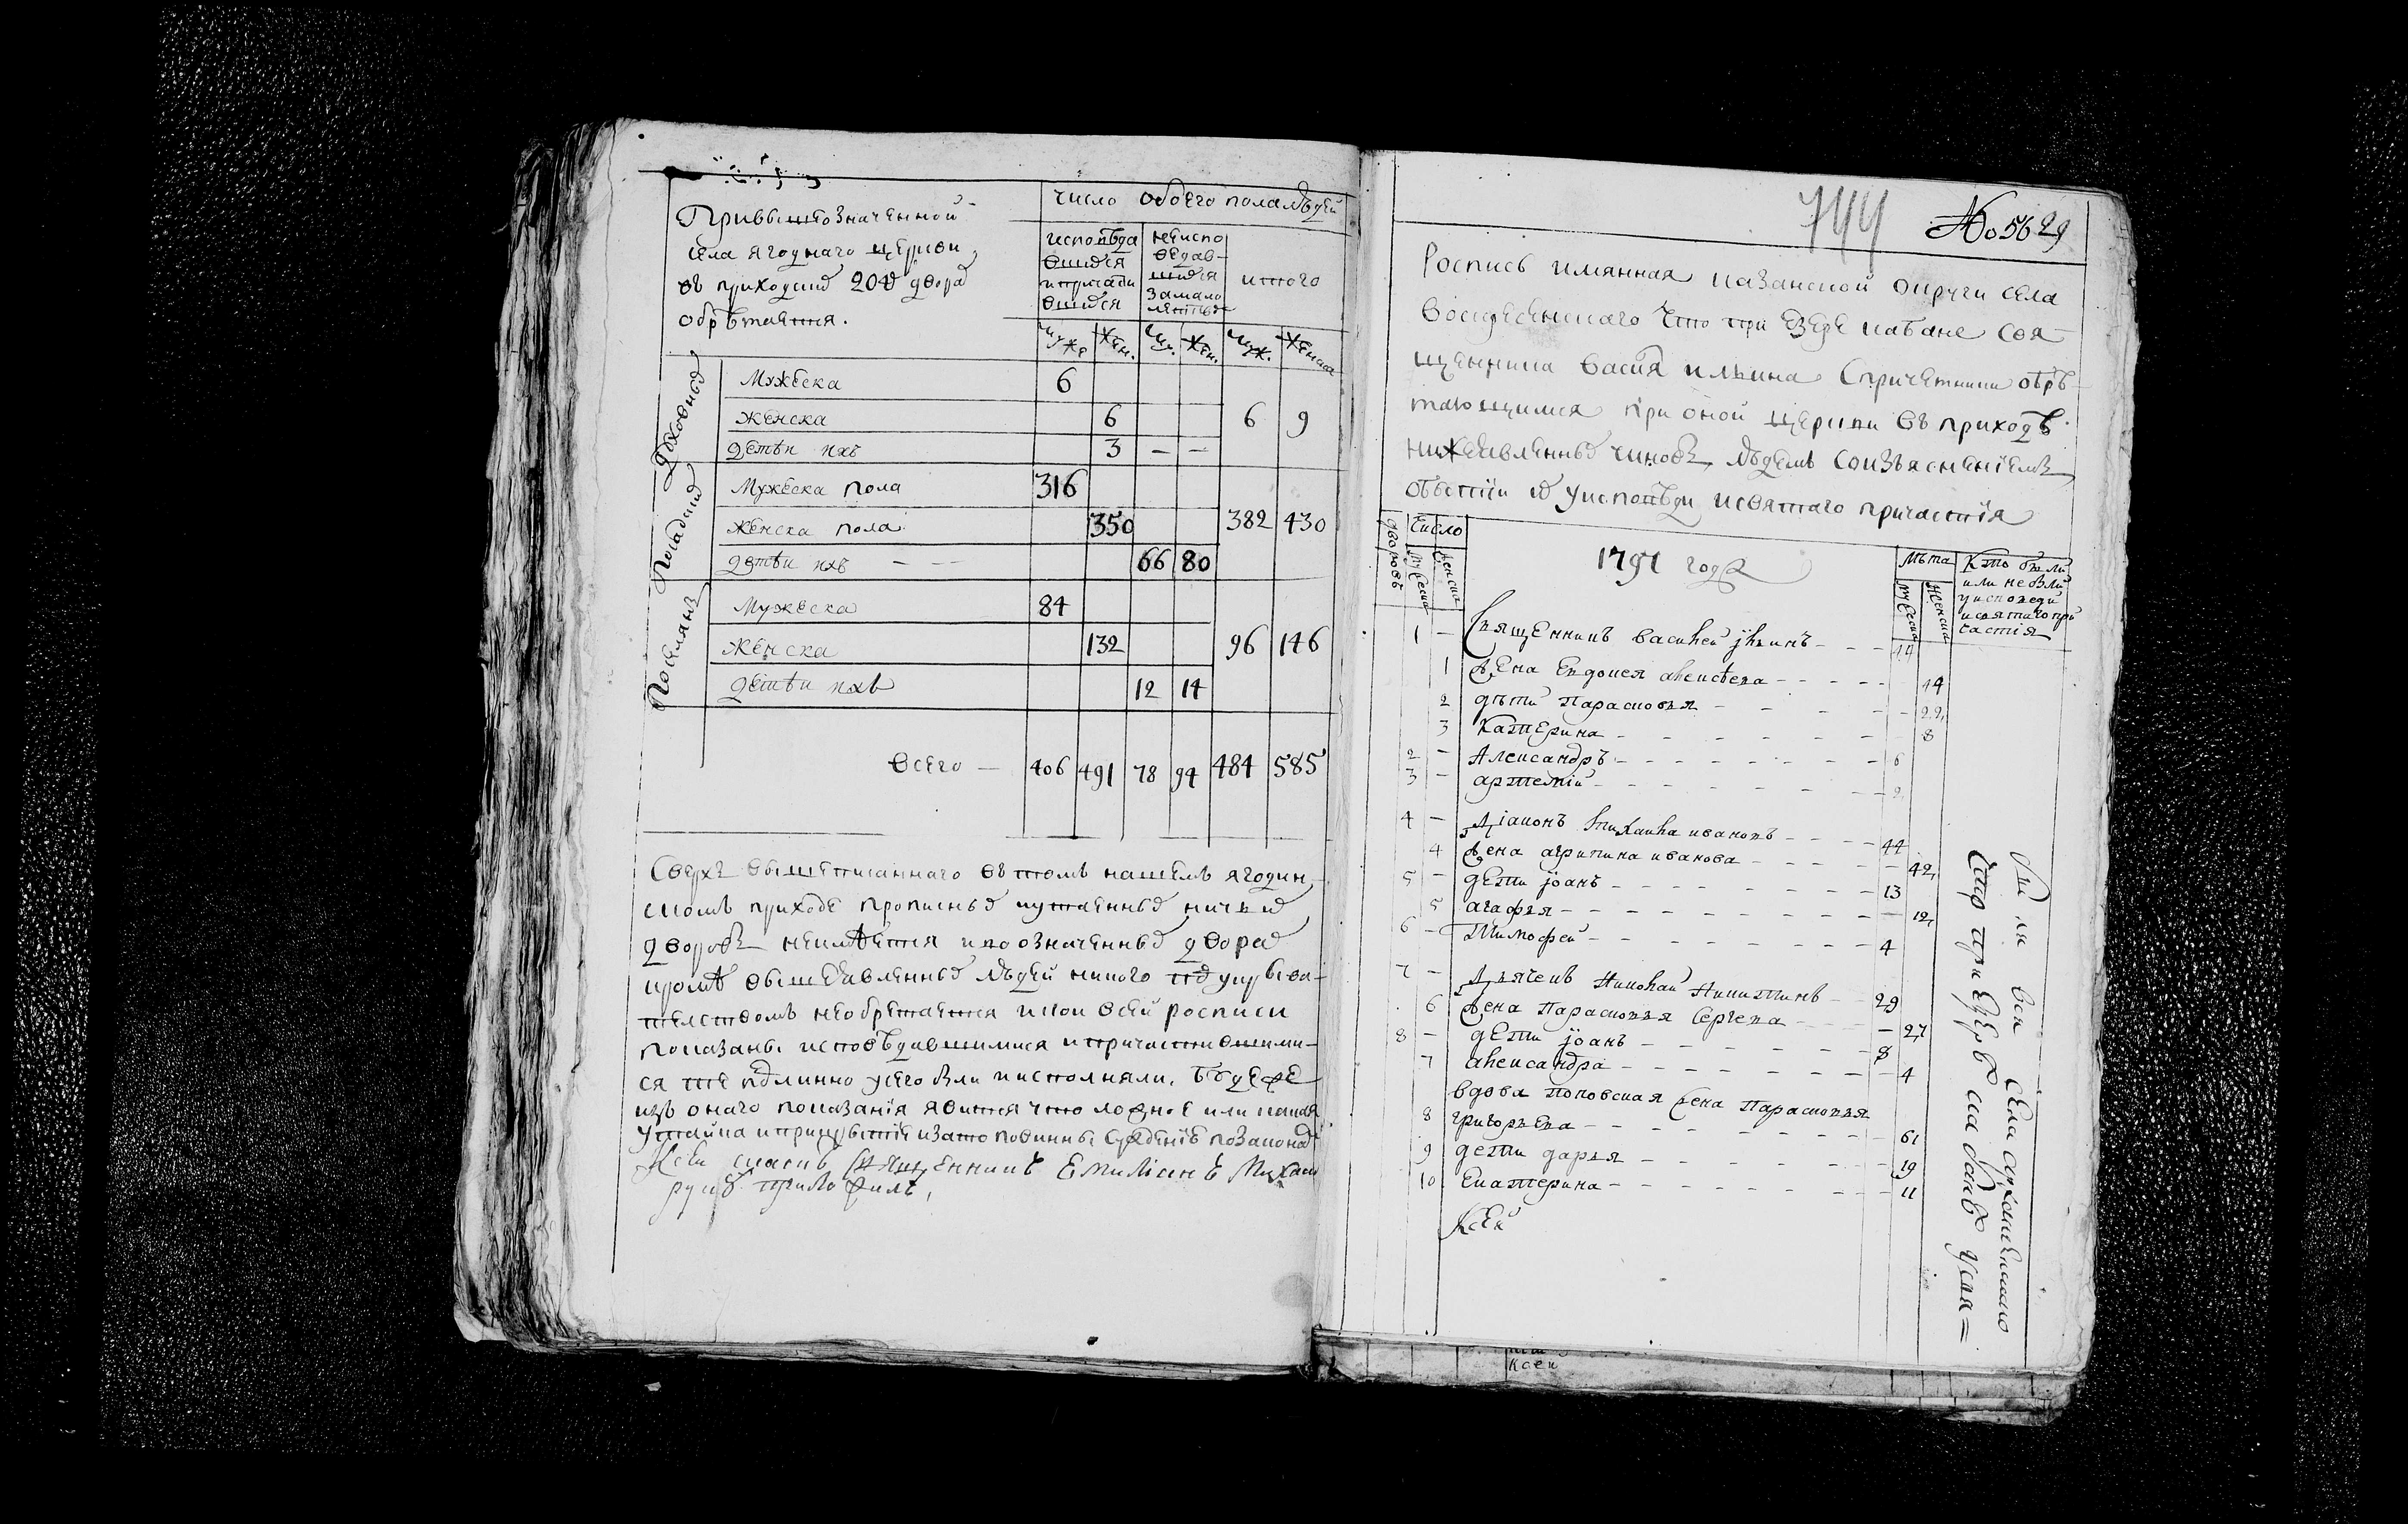 Привышеозначенной
села ягоднаго церкви
въ приходских 204 двора
обретается.
число обоего пола людей
исповеда
вшихся
и причасти
вшихся
неиспо
ведав
шихся
за мало
летных
итого
Муж Жен. Муж. Жен. Муж. Женска
Духовных
Мужеска 6
женска 6 6 9
детеи ихъ 3 — —
Посадских
Мужеска пола 316
женска пола 350 382 430
детеи ихъ — — 66 80
Поселянъ
Мужеска 84
женска 132 96 146
детеи ихъ 12 14
всего — 406 491 78 94 484 585
Сверхъ вышеписаннаго въ томъ нашемъ ягодин
скомъ приходе прописных и утаенных ничьих
дворовъ неимеется и во означенных дворах
кроме вышеявленных людей никого под укрыва
тельствомъ необретается и кои в сей росписи
показаны исповедавшимися и причастившими
ся те подлинно у сего были и исполняли. Буде же
изъ онаго показанія явится что ложное или какая
утайка и прикрытіе и за то повинны суждению по законам
К сей священникъ Емиліанъ Михаи
руку приложилъ
744 № 5629
Роспись имянная казанской округи села
Воскресенскаго что при езере кабане свя
щенника Василя Ильина с причетники обре
тающимися при оной церкви въ приходе
нижеявленных чиновъ людемъ со изъясненіемъ
о бытіи их у исповеди и святаго причастія
дворовъ Число Мужеска Женска
1791 года
Лета Мужеска Женска
Кто были
или не были
у исповеди
и святаго при
частія
1 — Священникъ Василей Ильинъ 44
1 Жена Евдокея Алексеева 44
2 дети Парасковья 22
3 Катерина 8
2 — Александръ 6
3 — Артемій 2
4 — Діаконъ Михаила Ивановъ 44
4 Жена Агрипина Иванова 42
5 — дети Іоанъ 13
5 Агафья 12
6 — Тимофей 4
7 — Дьячекъ Николай Никитинъ 29
6 Жена Парасковья Сергеева 27
8 — дети Іоанъ 8
7 Александра 4
вдова поповская жена Парасковья
8 Григорьева 61
9 дети Дарья 19
10 Екатерина 11
К сей
К сей